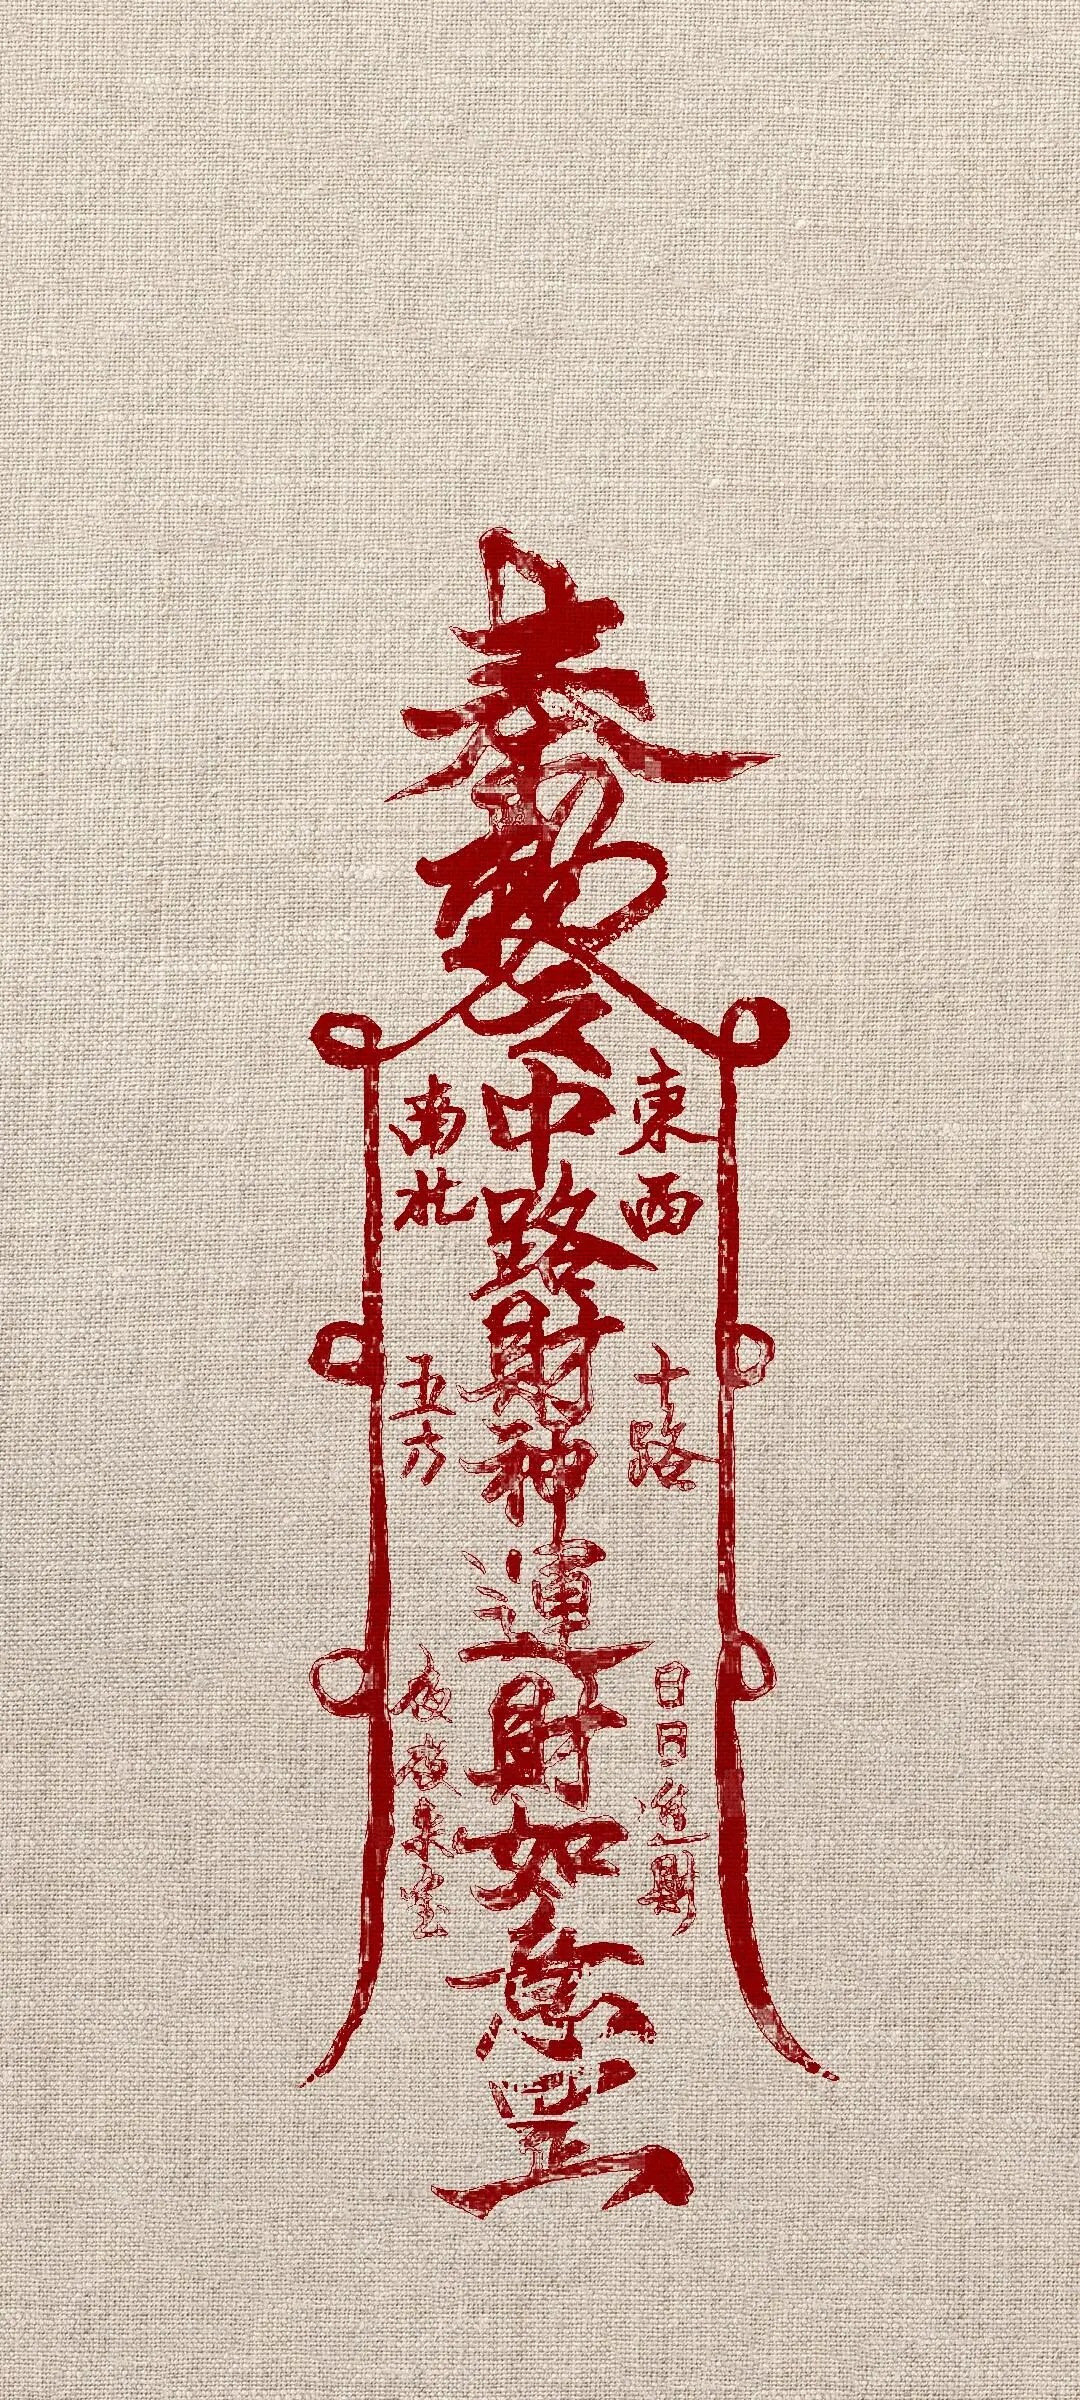 奉
東西
中路財神運財如意
南北
十路
五方
日日進財
夜夜來寶